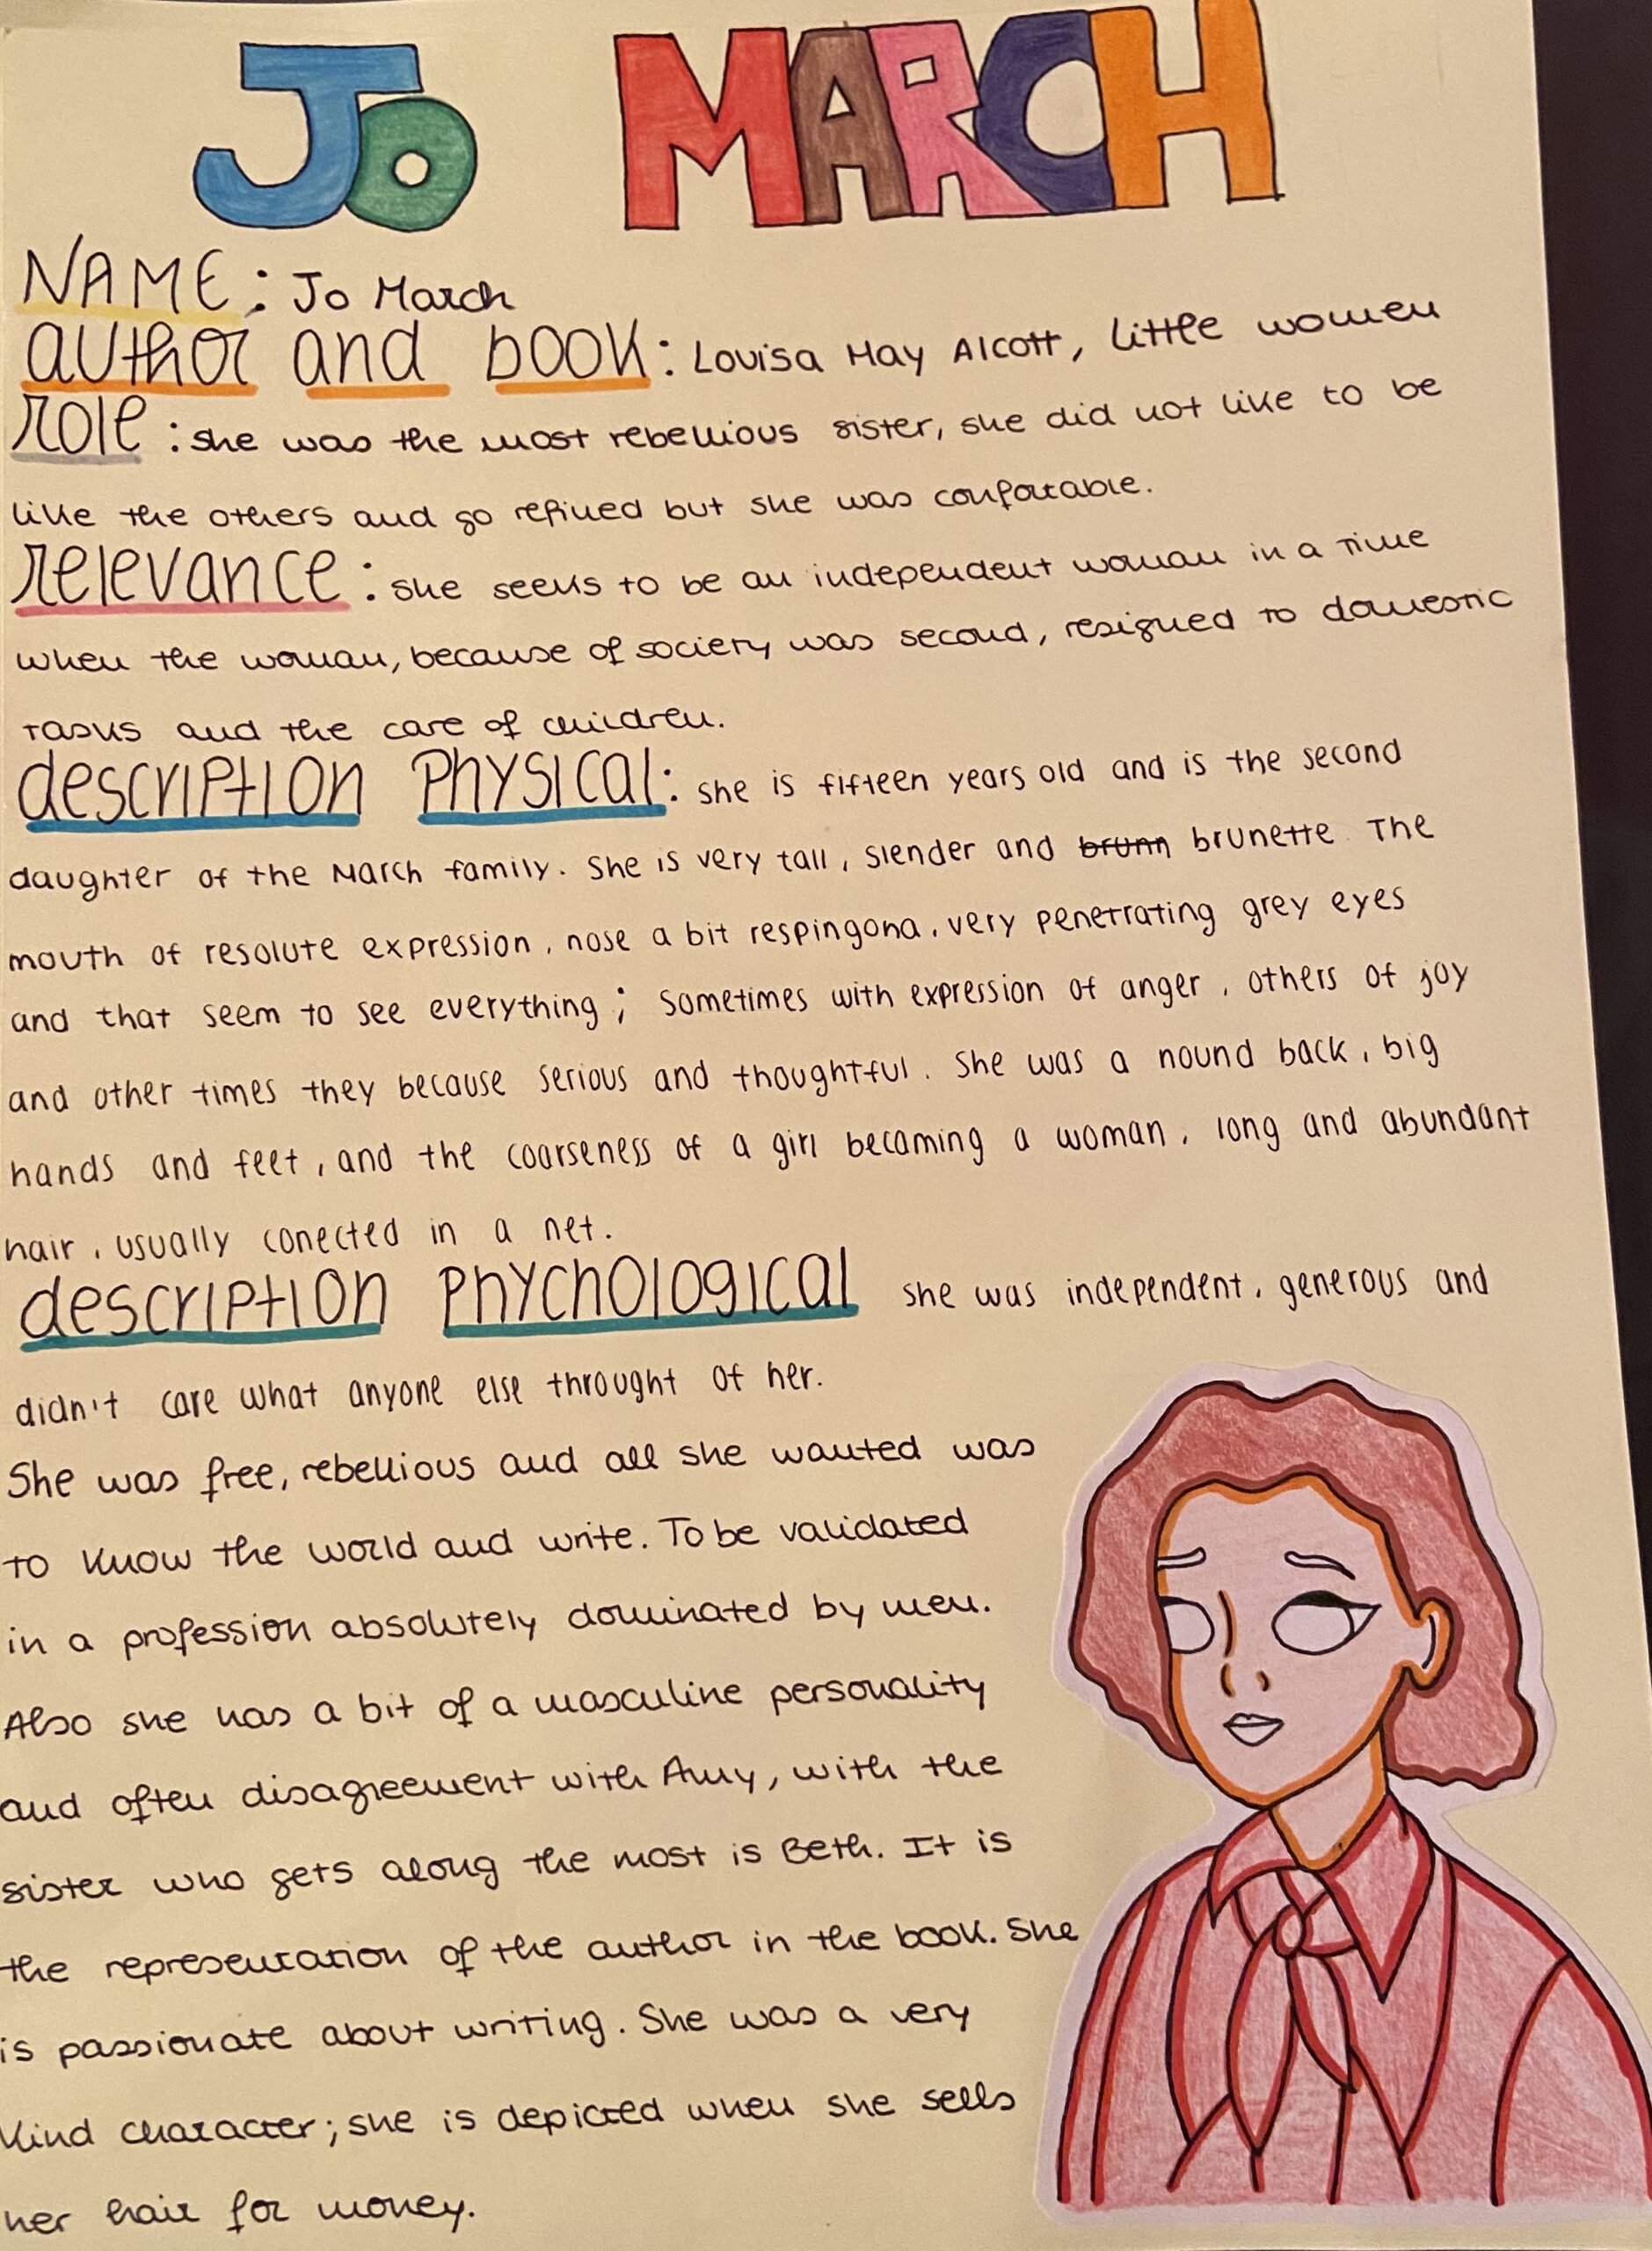 JO MARCH
NAME: Jo March
author and book: Louisa May Alcott, little women
role: she was the most rebellious sister, she did not like to be
like the others and go refined but she was confortable.
relevance: she seeks to be an independent woman in a time
when the woman, because of society was second, resigned to domestic
tasks and the care of children.
description physical: she is fifteen years old and is the second
daughter of the March family. She is very tall, slender and brunn brunette. The
mouth of resolute expression, nose a bit respingona, very penetrating grey eyes
and that seem to see everything; sometimes with expression of anger, others of joy
and other times they because serious and thoughtful. She was a nound back, big
hands and feet, and the coarseness of a girl becaming a woman, long and abundant
hair, usually conected in a net.
description phychological she was independent, generous and
didn't care what anyone else throught of her.
She was free, rebellious and all she wanted was
to know the world and write. To be validated
in a profession absolutely dominated by men.
Also she has a bit of a masculine personality
and often disagreement with Amy, with the
sister who gets along the most is Beth. It is
the representation of the author in the book. She
is passionate about writing. She was a very
kind character; she is depicted when she sells
her hair for money.